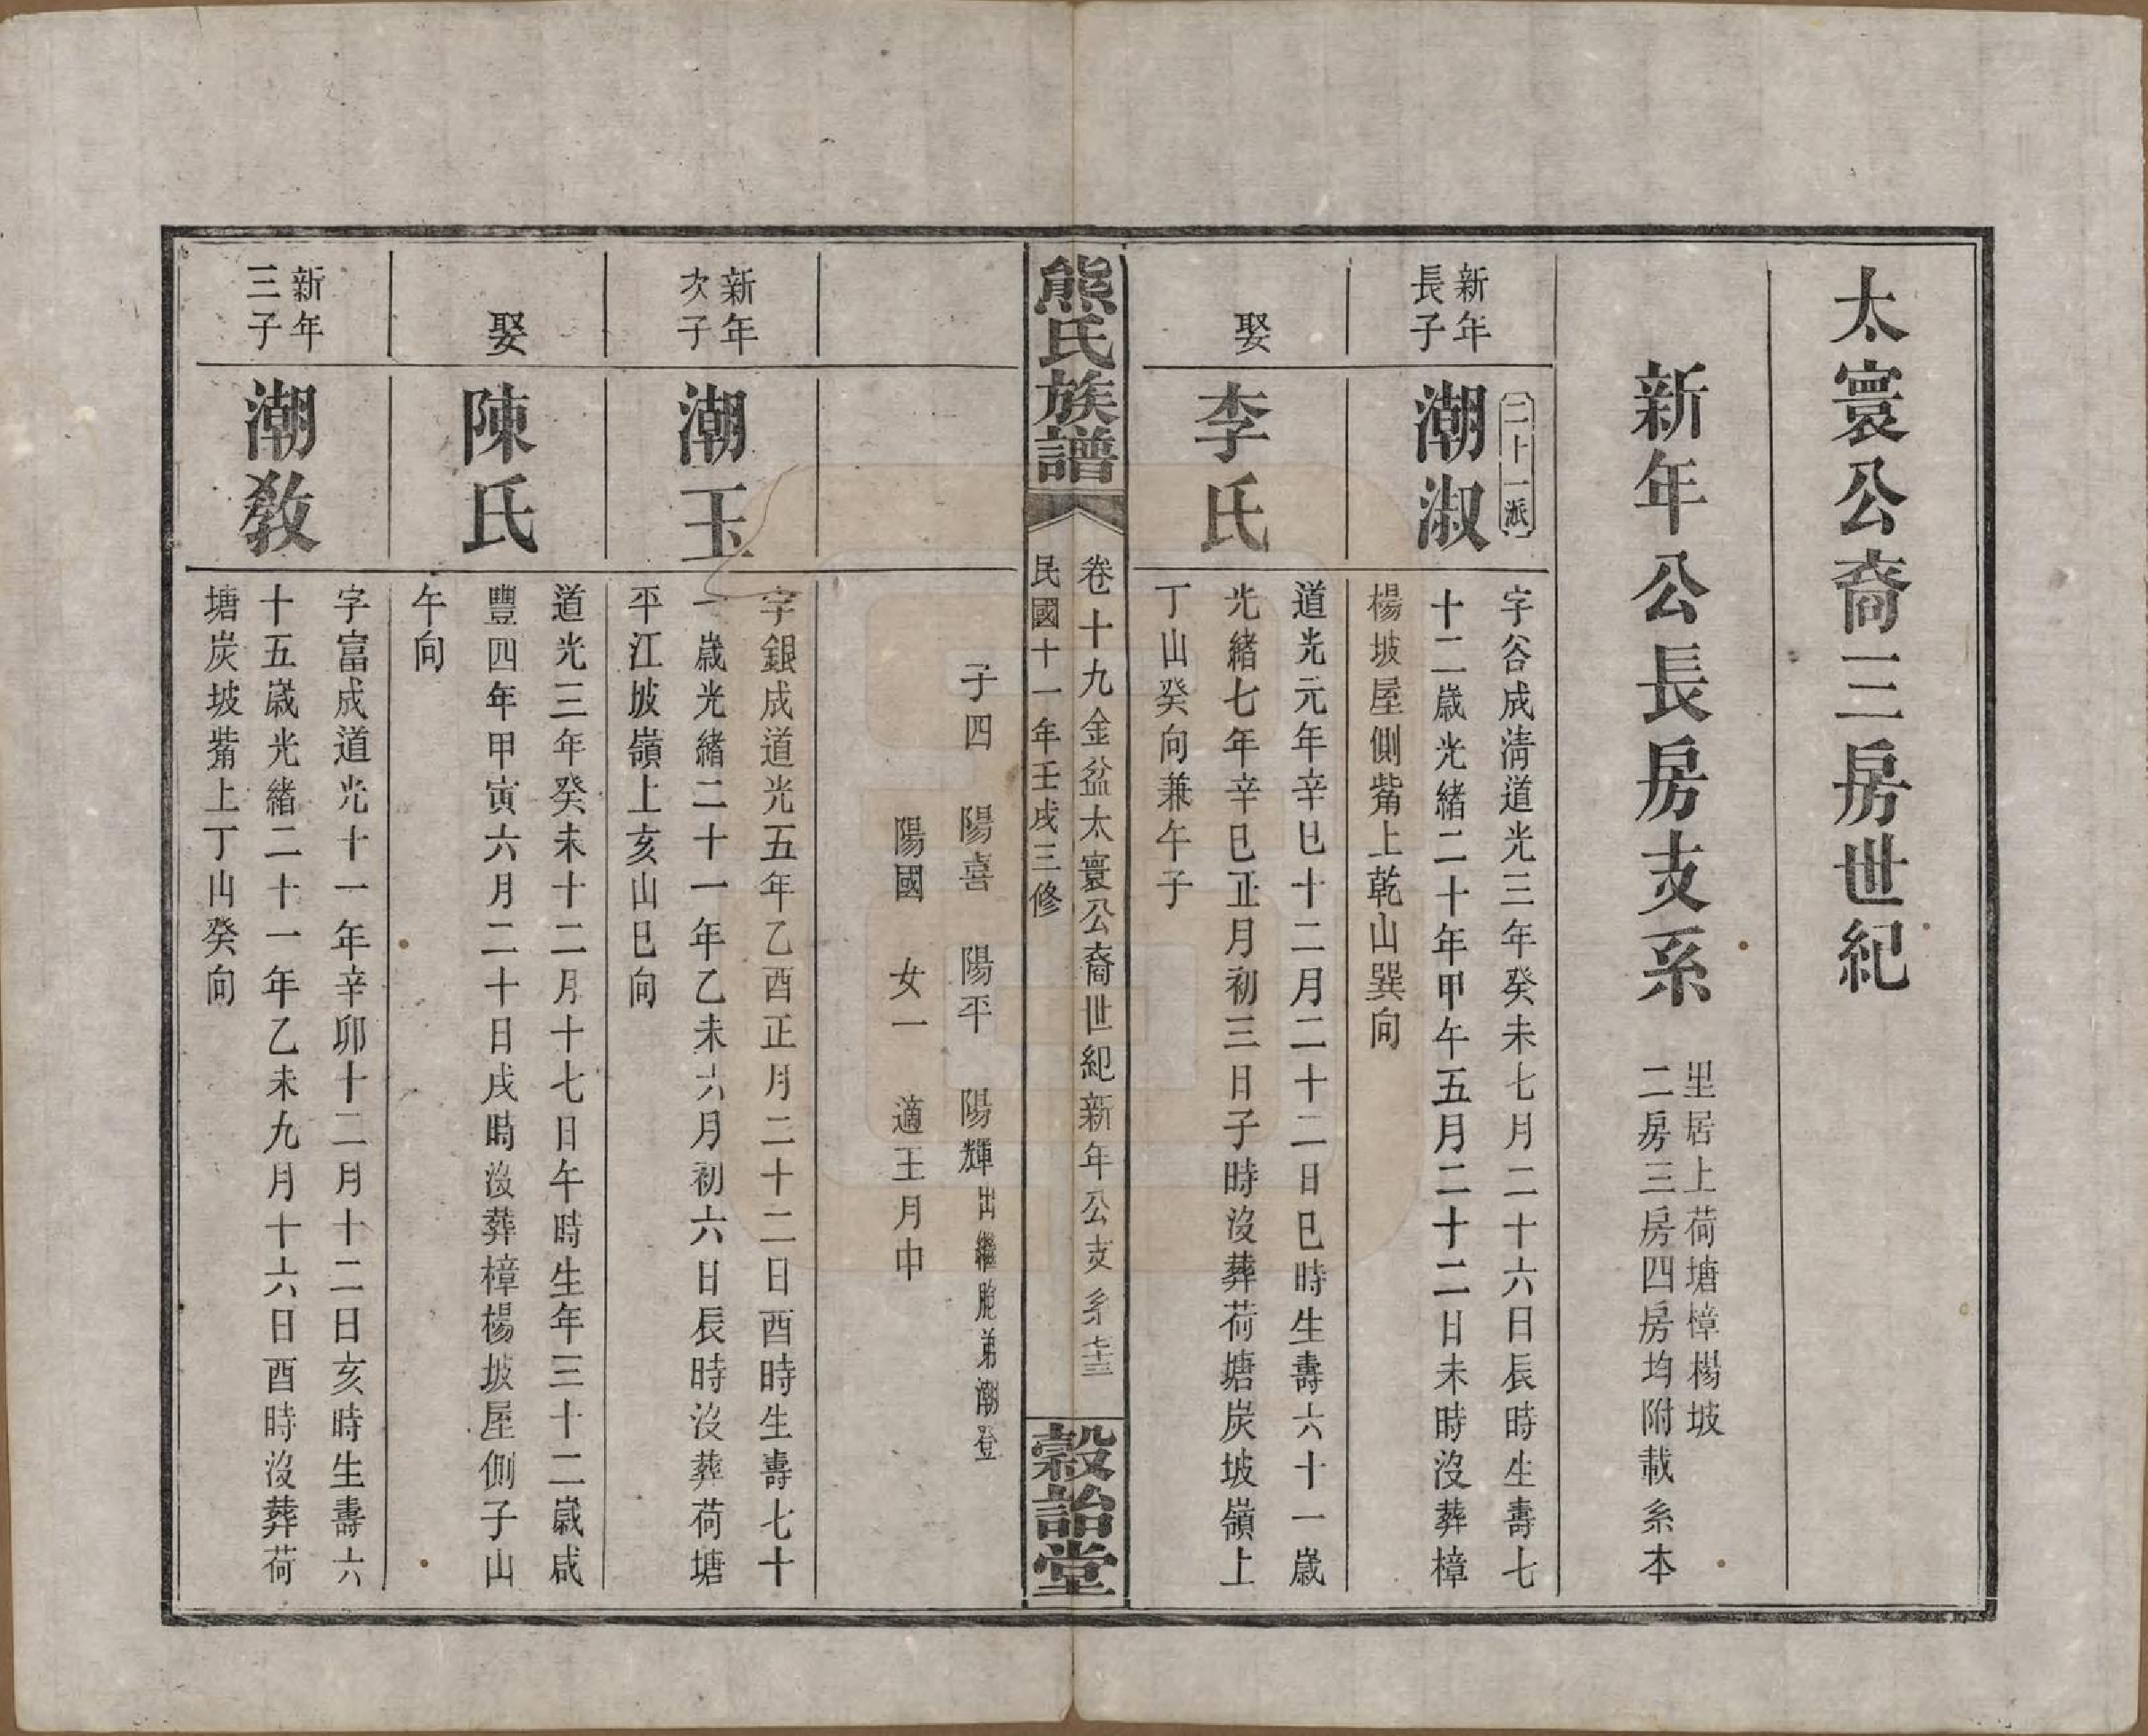 太寰公裔三房世紀
新年公長房支系
里居上荷塘樟楊坡
二房三房四房均附載系本
新年
長子
二十一派
潮淑
字谷成淸道光三年癸未七月二十六日辰時生壽七
十二歲光緒二十年甲午五月二十二日未時沒葬樟
楊坡屋側觜上乾山巽向
娶
李氏
道光元年辛巳十二月二十二日巳時生壽六十一歲
光緒七年辛巳正月初三日子時沒葬荷塘炭坡嶺上
丁山癸向兼午子
熊氏族譜
卷十九金盆太寰公裔世紀新年公支系七十三
民國十一年壬戌三修
穀詒堂
子四 陽喜 陽平 陽輝出繼胞弟潮登
陽國 女一 適王月中
新年
次子
潮玉
字銀成道光五年乙酉正月二十二日酉時生壽七十
一歲光緒二十一年乙未六月初六日辰時沒葬荷塘
平江坡嶺上亥山巳向
娶
陳氏
道光三年癸未十二月十七日午時生年三十二歲咸
豐四年甲寅六月二十日戌時沒葬樟楊坡屋側子山
午向
新年
三子
潮敎
字富成道光十一年辛卯十二月十二日亥時生壽六
十五歲光緒二十一年乙未九月十六日酉時沒葬荷
塘炭坡觜上丁山癸向